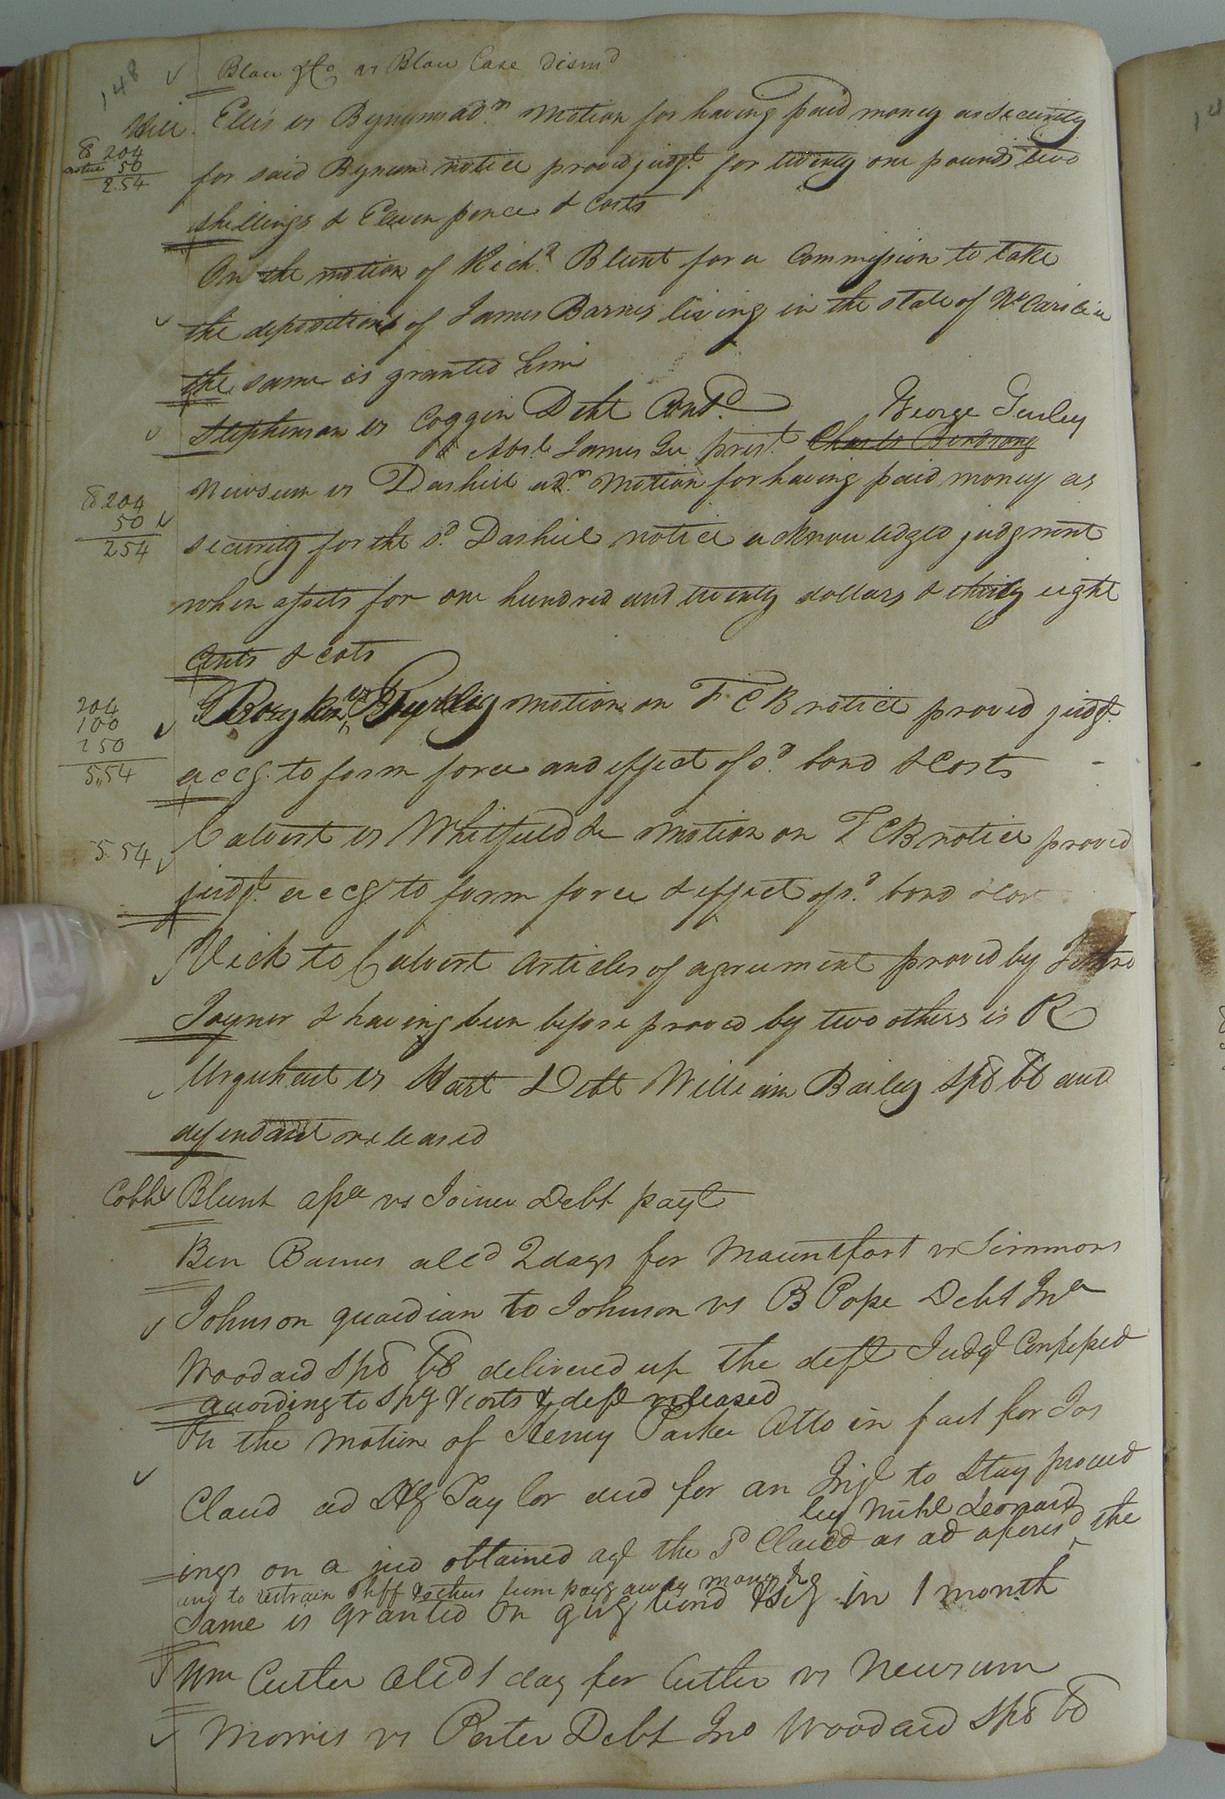 148
Blow & Co vs Blow Case dismd
Hill Ellis vs Bynums adm. Motion for having paid money as security
8 204
notice 50
2.54
for said Bynum notice proved judgt. for twenty one pounds two
shillings & Eleven pence & Costs
On the motion of Richd. Blunt for a Commission to take
the depositions of James Barnes living in the state of No Carolina
the same is granted him
Stephenson vs Coggin Debt Contd.
George Gurley
Abse James Gee prest. Charles Birdsong
8 204
50
254
Newsum vs Dashiel adm. Motion for having paid money as
security for the sd. Dashiel notice acknowledged judgment
when assets for one hundred and twenty dollars & thirty eight
Cents & Costs
204
100
250
5.54
Boykin vs motion on F C B notice proved judgt.
accg. to form force and effect of sd. bond & Costs
5.54
Calvert vs Whitfield & motion on F C B notice proved
judgt. accg to form force & effect of sd. bond & Cos
Vick to Calvert articles of agreement proved by Jethro
Joyner & having been before proved by two others is R
Urquhart vs Hart Debt William Bailey Spd bd and
defendant released
Cobbs Blunt apee vs Joiner Debt payt
Ben Barnes alld 2 days for Mountfort vs Simmons
Johnson guardian to Johnson vs B Pope Debt Jno
Woodard Spd bd delivered up the deft Judgt Confessed
according to Spy & costs & deft released
On the motion of Henry Parker Atto in fact for Jos
Claud ad Taylor decd for an Injt to Stay proceed
ings on a jud obtained agt the sd Claud as ad aforesd by Michl Leonard the
and to restrain Shff & others from payg away money &c
Same is granted on givg bond & Secy in 1 month
Wm Cutler alld 1 day for Cutler vs Newsum
Morris vs Porter Debt Jno Woodard Spd bd